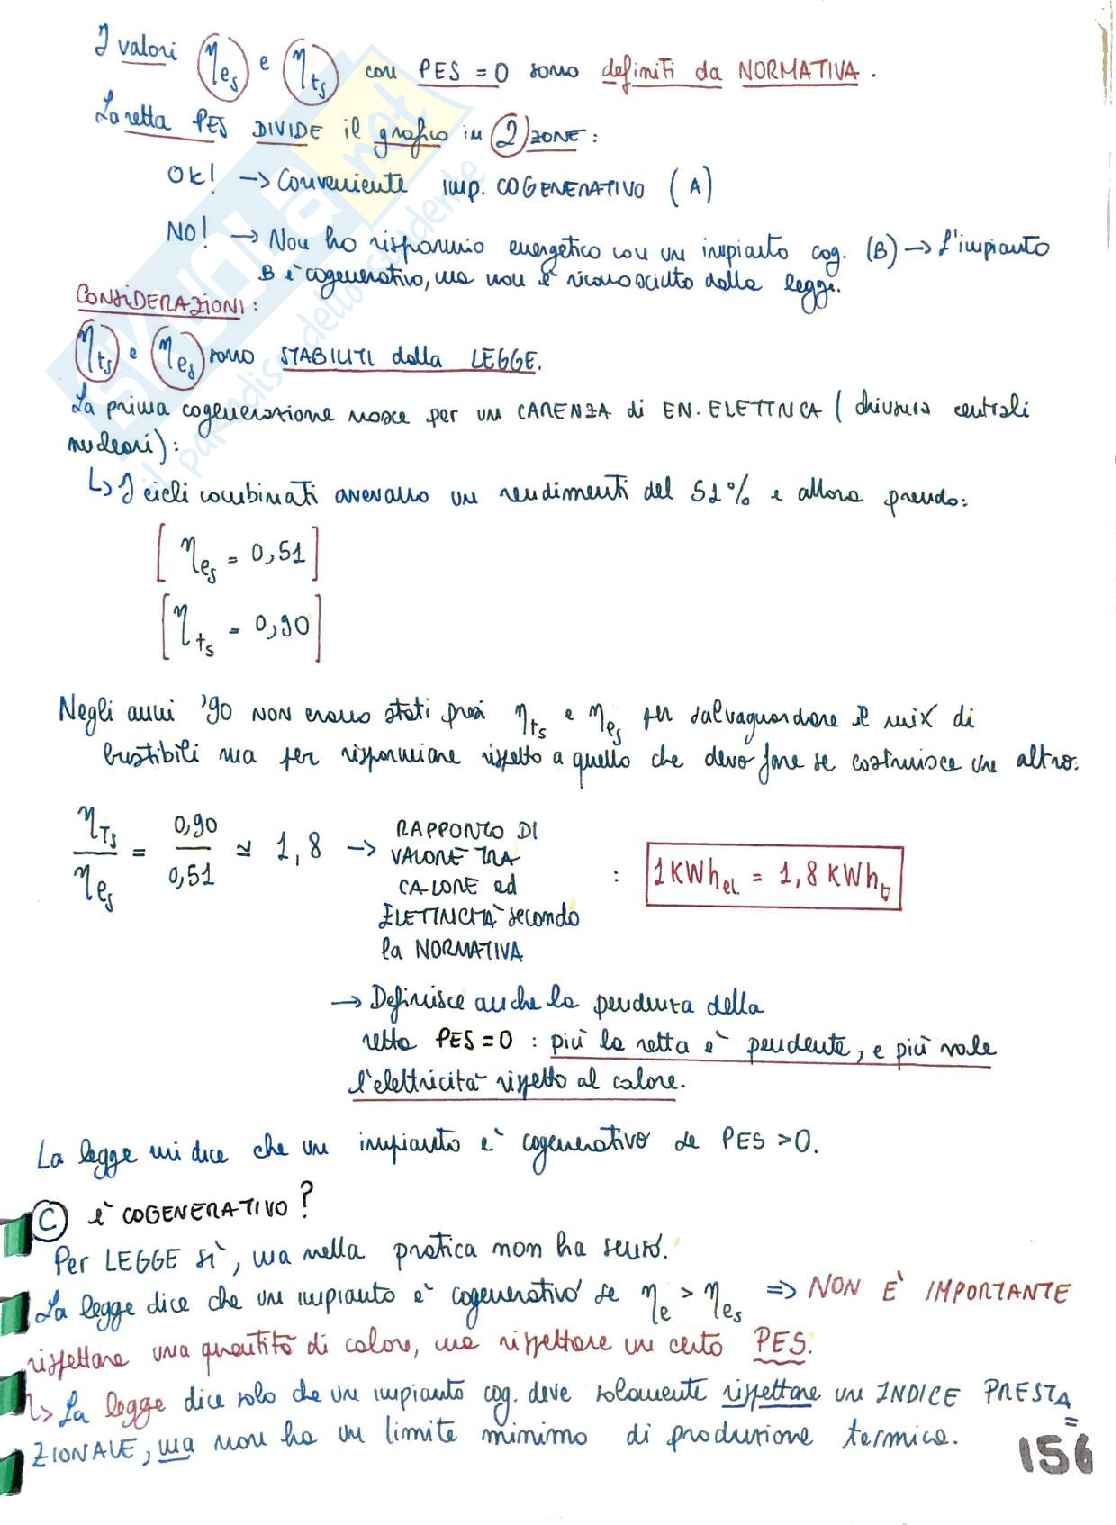 I valori ηes e ηts con PES = 0 sono definiti da NORMATIVA.
La retta PES DIVIDE il grafico in 2 ZONE:
OK! → Conveniente imp. COGENERATIVO (A)
NO! → Non ho risparmio energetico con un impianto cog. (B) → l'impianto
B è cogenerativo, ma non è riconosciuto dalla legge.
CONSIDERAZIONI:
ηts e ηes sono STABILITI dalla LEGGE.
La prima cogenerazione nasce per un CARENZA di EN. ELETTRICA (chiusura centrali
nucleari):
↳ I cicli combinati avevano un rendimenti del 51% e allora prendo:
[ηes = 0,51]
[ηts = 0,90]
Negli anni '90 NON erano stati presi ηts e ηes per salvaguardare il mix di
bustibili ma per risparmiare rispetto a quello che devo fare se costruisce un altro.
ηTs/ηes = 0,90/0,51 ≃ 1,8 → RAPPORTO DI
VALORE TRA
CALORE ed
ELETTRICITÀ secondo
la NORMATIVA
: 1 KWhel = 1,8 KWht
→ Definisce anche la pendenza della
retta PES = 0 : più la retta è pendente, e più vale
l'elettricità rispetto al calore.
La legge mi dice che un impianto è cogenerativo se PES > 0.
C è COGENERATIVO?
Per LEGGE sì, ma nella pratica non ha senso.
La legge dice che un impianto è cogenerativo se ηe > ηes ⇒ NON È IMPORTANTE
rispettare una quantità di calore, ma rispettare un certo PES.
↳ La legge dice solo che un impianto cog. deve solamente rispettare un INDICE PRESTA
ZIONALE, ma non ha un limite minimo di produzione termica.
156
SKUOLA.net
il paradiso dello studente